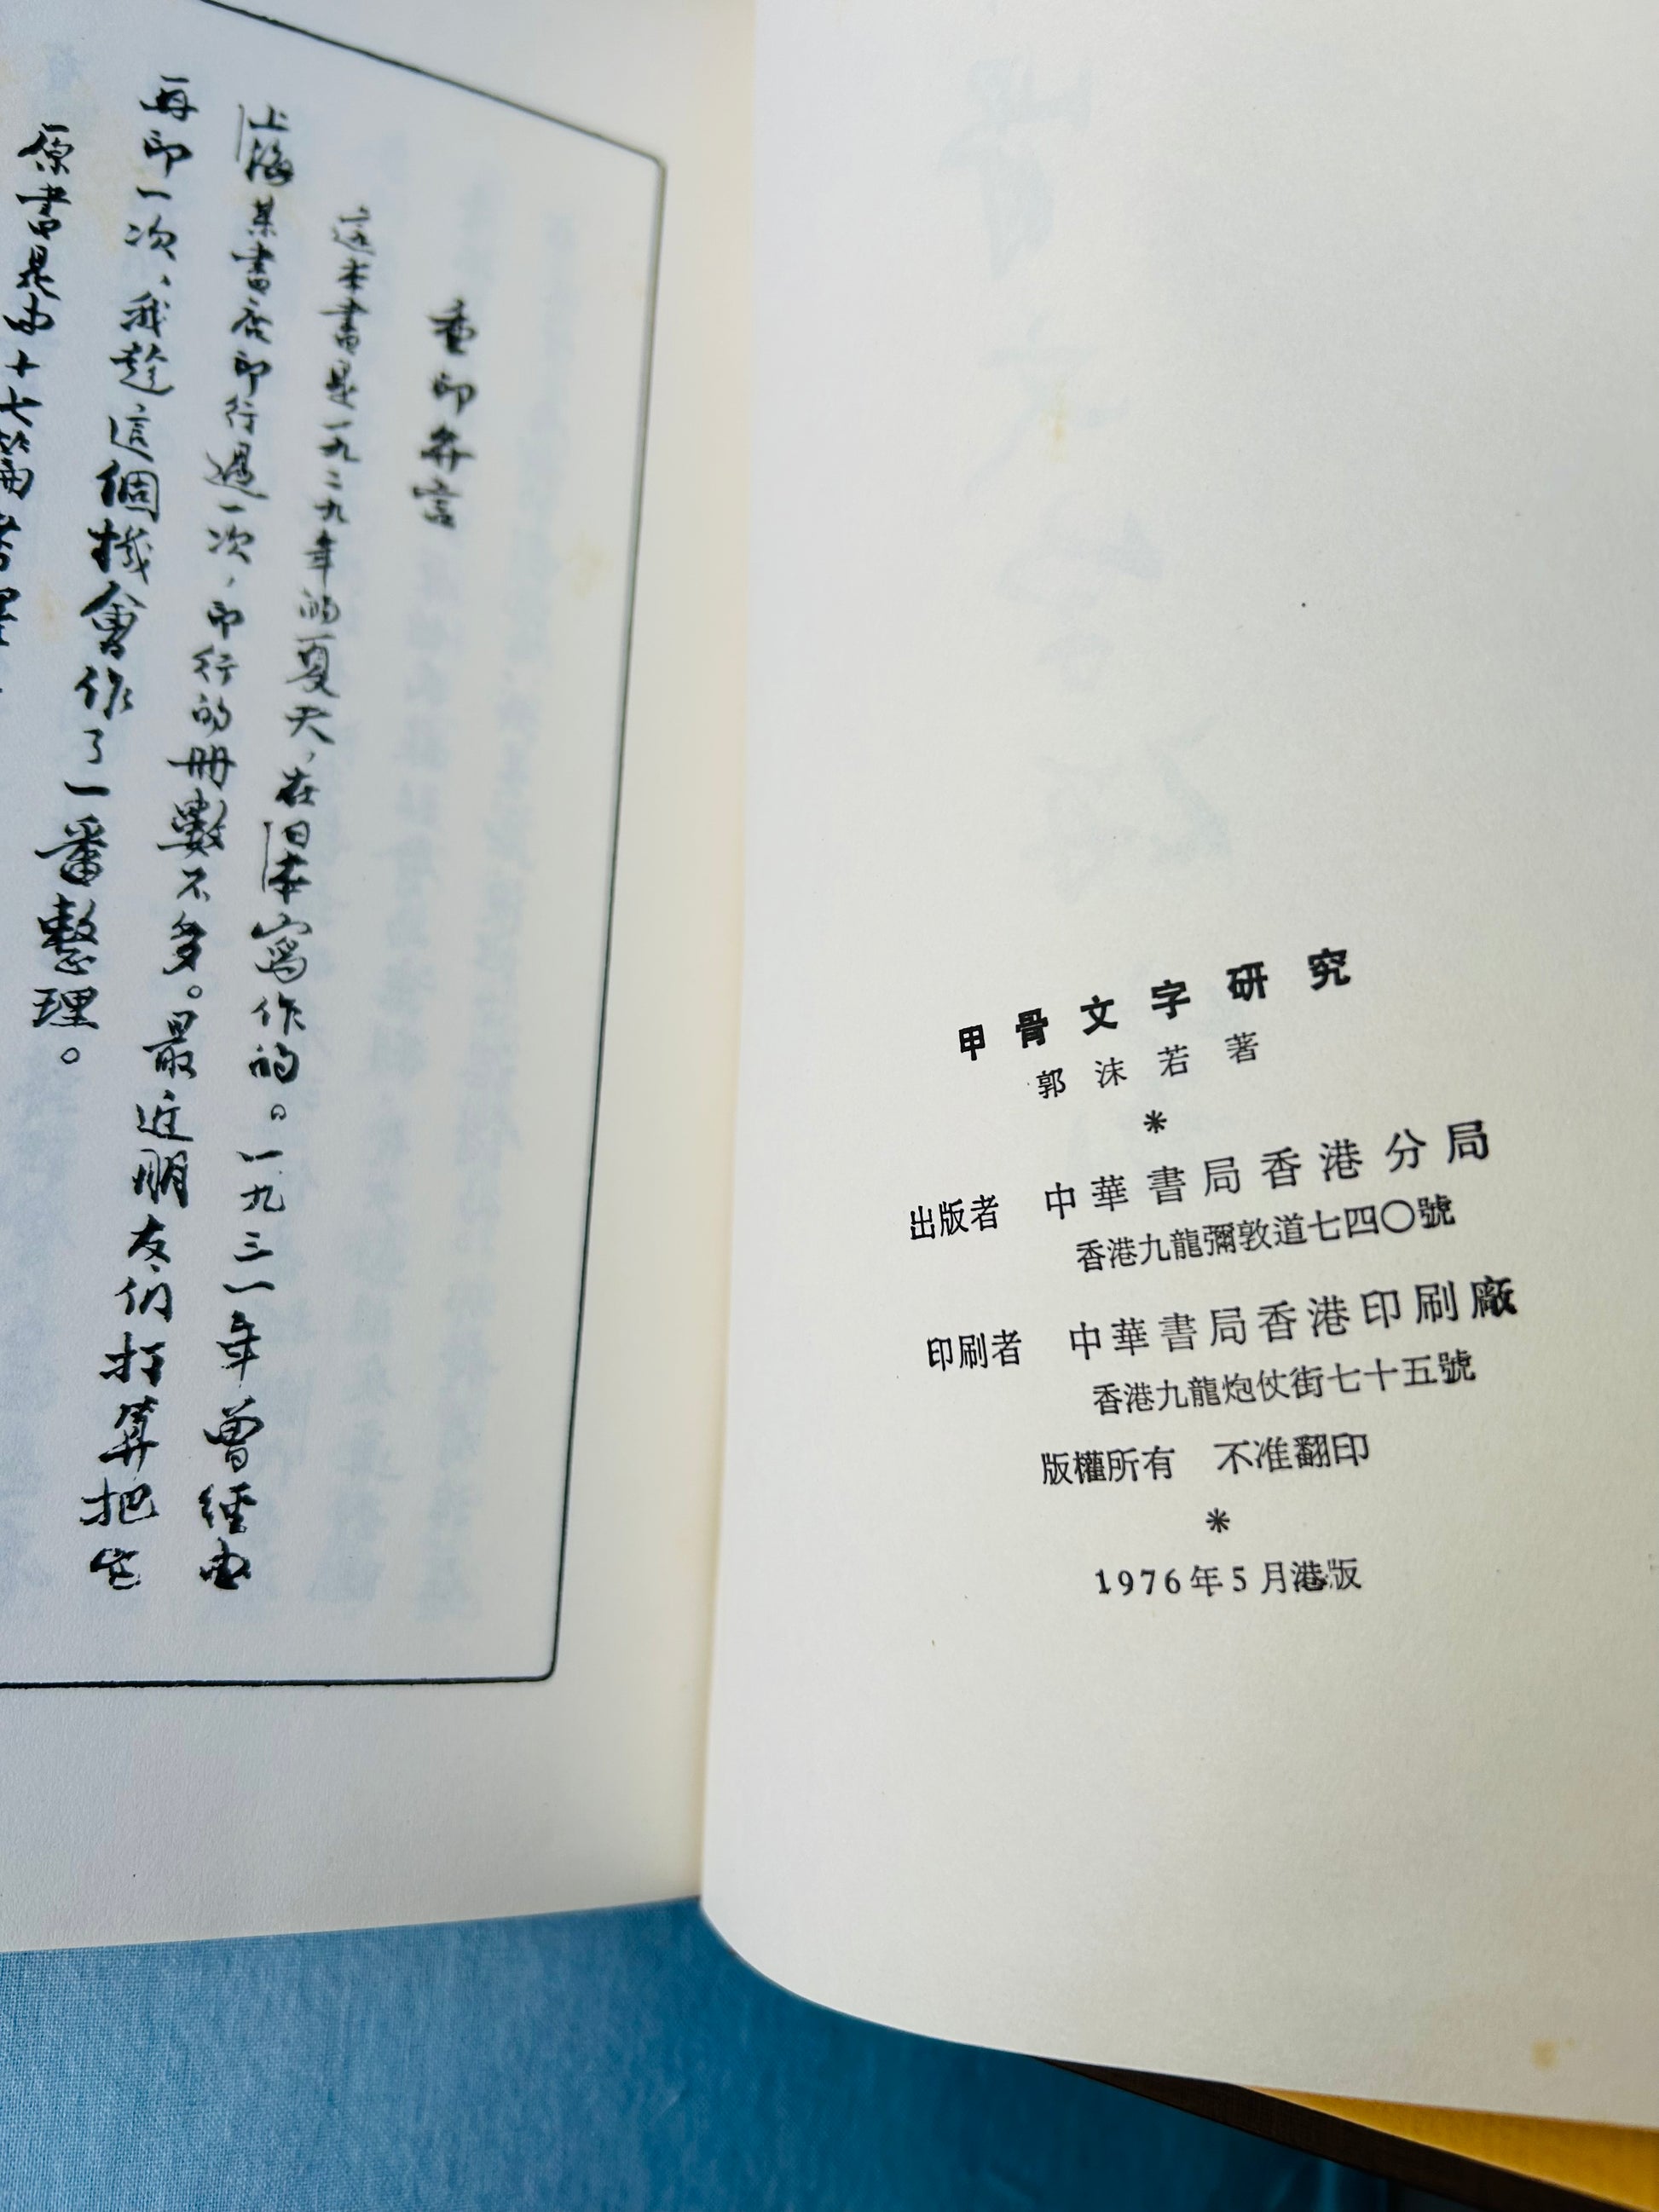 甲骨文字研究
郭沫若著
*
出版者　中華書局香港分局
香港九龍彌敦道七四〇號
印刷者　中華書局香港印刷廠
香港九龍炮仗街七十五號
版權所有　不准翻印
*
1976年5月港版
重印弁言
這本書是一九二九年的夏天，在日本寫作的。一九三一年曾經由
上海某書店印行過一次，印行的册數不多。最近朋友們打算把它
再印一次、我趁這個機會作了一番整理。
原書是由十七篇考釋